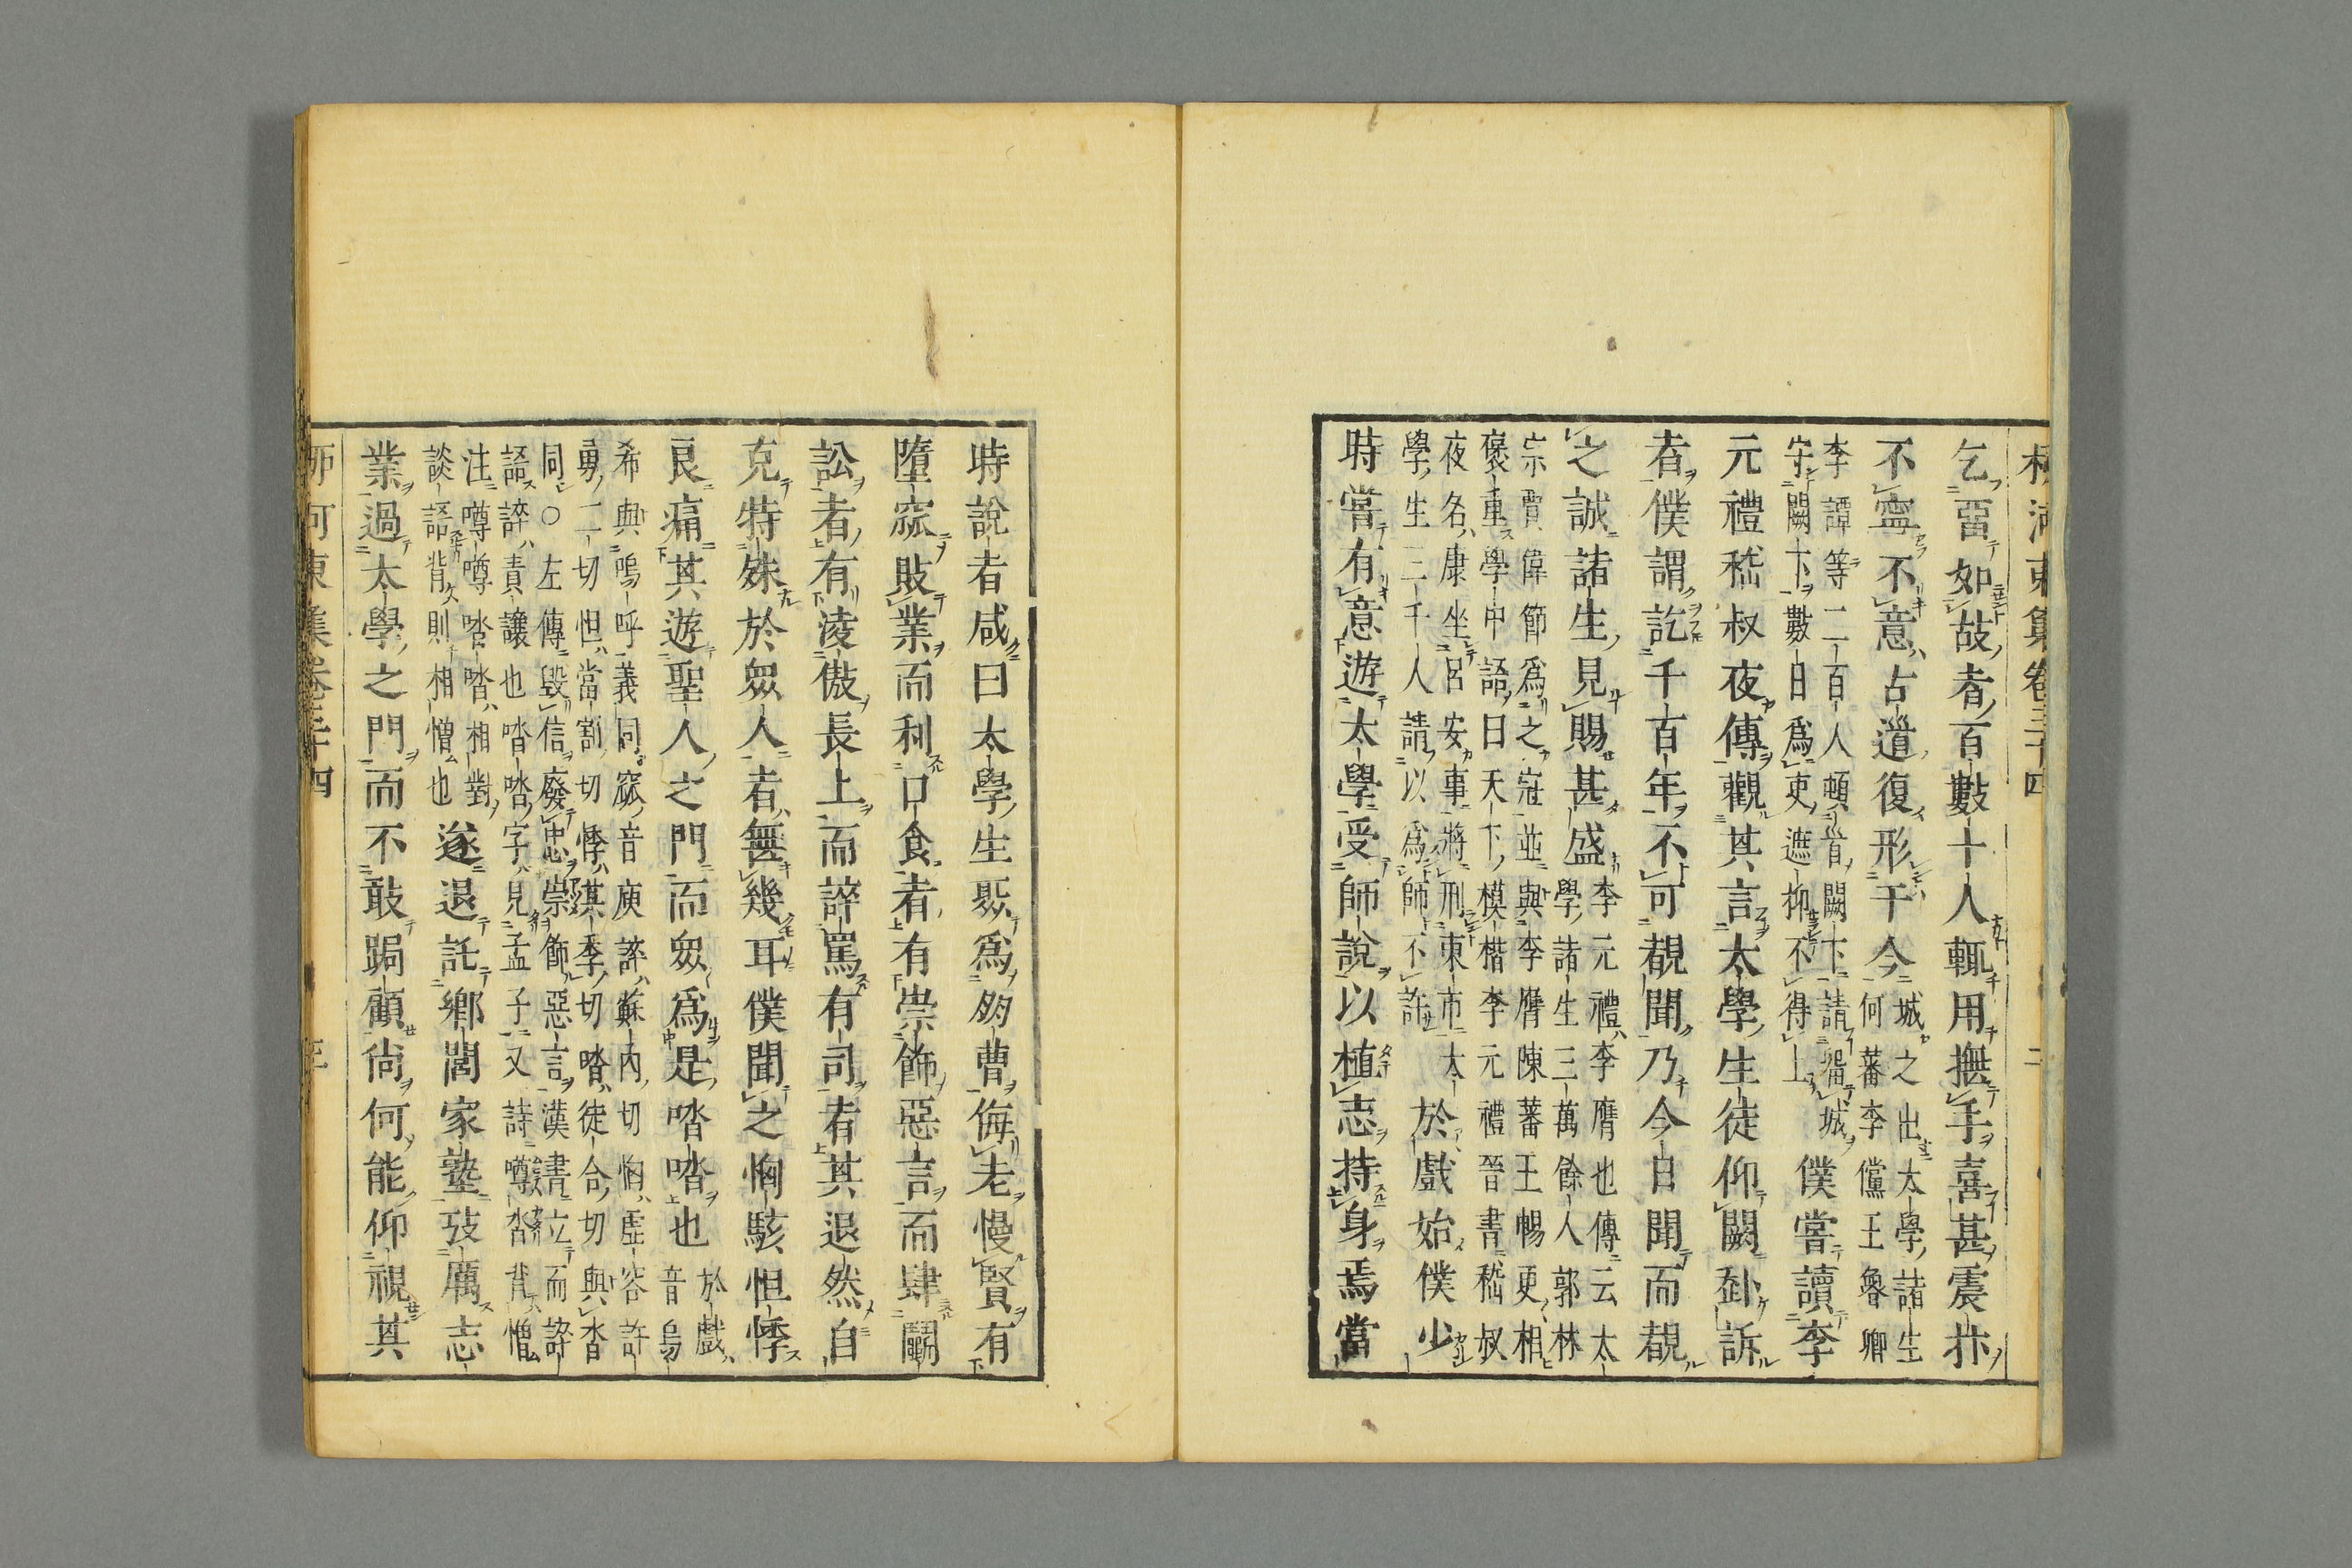 柳河東集卷三十四 二
乞畱如故者百數十人輒用撫手喜甚震抃
不寧不意古道復形于今
城之出太學諸生
何蕃李儻王魯卿
李譚等二百人頓首闕下請畱城
守闕下數日爲吏遮抑不得上
僕嘗讀李
元禮嵇叔夜傳觀其言太學生徒仰闕赴訴
者僕謂訖千百年不可覩聞乃今日聞而覩
之誠諸生見賜甚盛
李元禮李膺也傳云太
學諸生三萬餘人郭林
宗賈偉節爲之冠並與李膺陳蕃王暢更相
褒重學中語曰天下模楷李元禮晉書嵇叔
夜名康坐呂安事將刑東市太
學生三千人請以爲師不許
於戲始僕少
時嘗有意遊太學受師說以植志持身焉當
時說者咸曰太學生聚爲朋曹侮老慢賢有
墮窳敗業而利口食者有崇飾惡言而肆鬭
訟者有淩傲長上而誶罵有司者其退然自
克特殊於衆人者無幾耳僕聞之恟駭怛悸
良痛其遊聖人之門而衆爲是喈喈也
於戲
音烏
希與嗚呼義同窳音庾誶蘇內切恟虛容許
勇二切怛當割切悸其季切喈徒合切與沓
同○左傳毀信廢忠崇飾惡言漢書立而誶
語誶責讓也喈喈字見孟子又詩噂沓背憎
注噂噂喈喈相對
談語背則相憎也
遂退託鄉閭家塾攷厲志
業過太學之門而不敢跼顧尙何能仰視其
柳河東集卷三十四 三